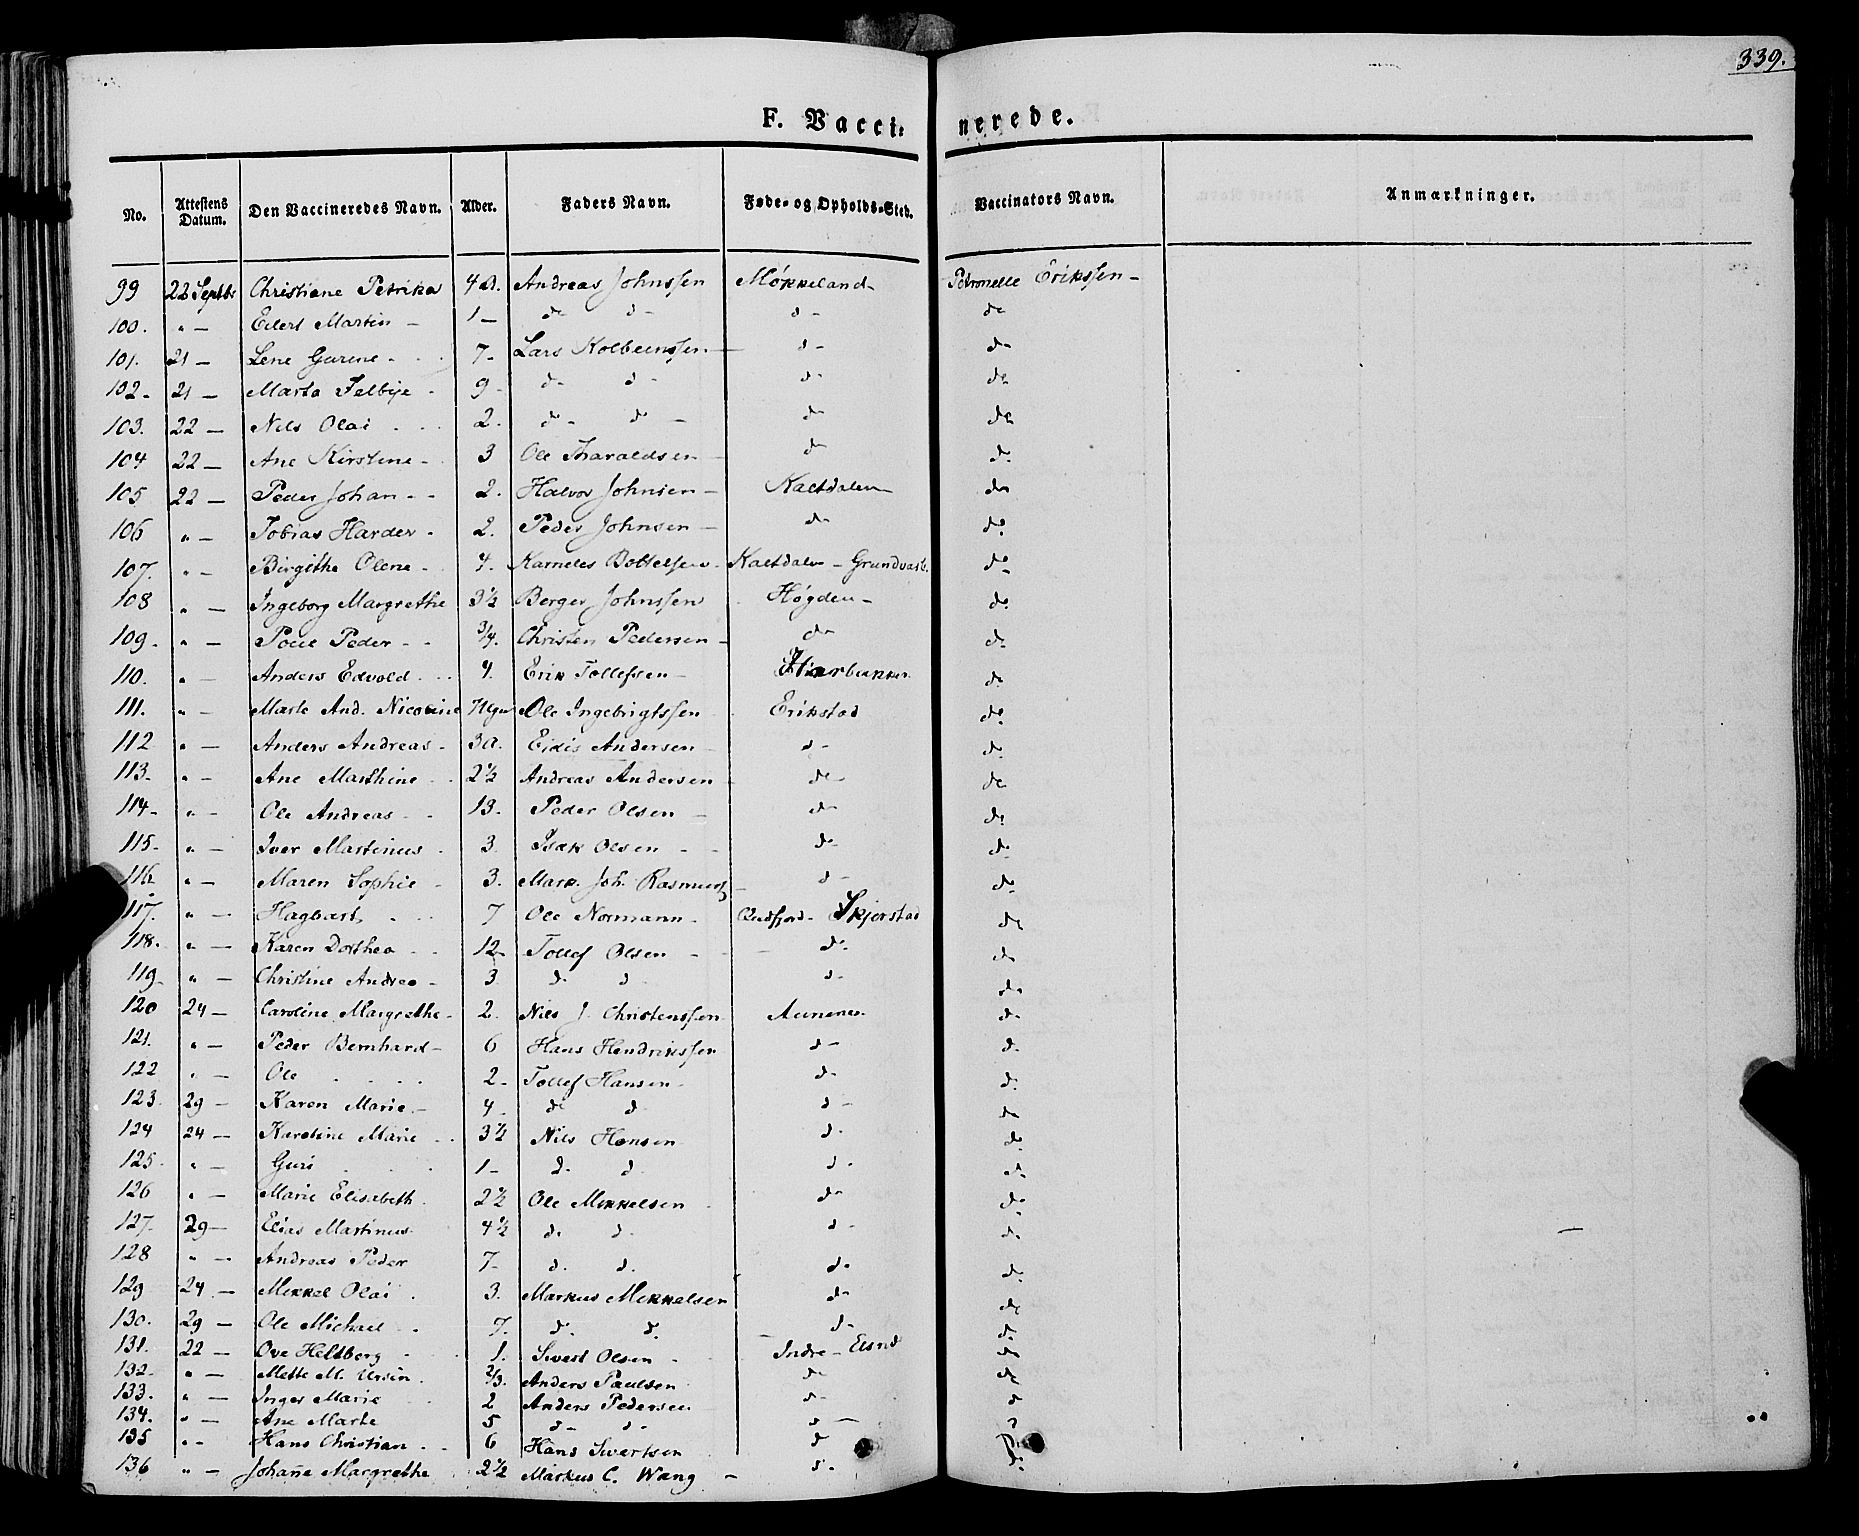 339.
F. Vaccinerede.
No. Attestens Datum. Den Vaccineredes Navn. Alder. Faders Navn. Føde- og Opholds-Sted. Vaccinators Navn. Anmærkninger.
99 22 Septbr Christiane Petrika 4 a. Andreas Johnssen Møkkeland - Petronelle Erikssen -
100. " - Edert Martin - 1 - do do - do - do
101. 21 - Lene Gurine - 7 - Lars Kolbeinssen - do - do
102 - 21 - Marta Felbye - 9 - do - do - do - do
103. 22 - Nils Olai 2. do - do - do do
104 22 - Ane Kirstine - 3 Ole Tharaldsen do do
105 22 - Peder Johan - - 2. Halvor Johnsen - Kaltdalen do
106 " - Tobias Harder - 2. Peder Johnsen - do do
107. " - Birgithe Olene - 4. Karneles Bottelsen - Kaltdaln - do
108 " - Ingeborg Margrethe 3½ Berger Johnssen Høgden - do
109. " - Poul Peder - - ¾. Christen Pedersen - do do
110. " - Anders Edvold 4. Erik Tollefsen - do
111. " - Marte And. Nicoline Ole Ingebrigtssen Erikstad do
112 " - Anders Andreas - 3 a. Eidis Andersen do - do
113 - " - Ane Marthine 2½ Andreas Andersen do - do
114 - " - Ole Andreas - - 13. Peder Olsen - do do
115. " - Iver Martinus - 3. Isak Olsen - - do do
116 " - Maren Sophie - 3. Mark. Joh. Rasmuss - do - do
117. " - Hagbart 7 Ole Normann - Skjerstad do
118. " - Karen Dorthea - - 12 - Tollef Olsen - do do
119 - " - Christine Andrea - 3 do do do do
120 24 - Caroline Margrethe - 2. Nils J. Christenssen do
121. " - Peder Bernhard - 6 Hans Hendrikssen do - do
122 " - Ole 2 - Tollef Hansen - do do
123. 29 - Karen Marie - 4 - do do do - do
124 24 - Karoline Marie 3½ Nils Hansen do do
125. " - Guri 1 - do do do do
126 " - Marie Elisabeth 2½ Ole Mikkelsen do do
127. 29 - Elias Martinus 4½ do do do - do
128 " - Andreas Peder 7 - do do do do
129 24 - Mikkel Olai 3. Markus Mikkelsen do do
130. 29 - Ole Michael 7. do do do - do
131. 22 - Ove Heltberg 1. Sivert Olsen - Indre - do
132 - " - Mette M. Ursin ⅔. Anders Paulsen do do
133. " - Inger Marie 2 Anders Pedersen do do
134. " - Ane Marte 5 do - do do do
135 " - Hans Christian 6 Hans Sivertsen do do
136 " - Johanne Margrethe 2½ Markus C. Wang - do do